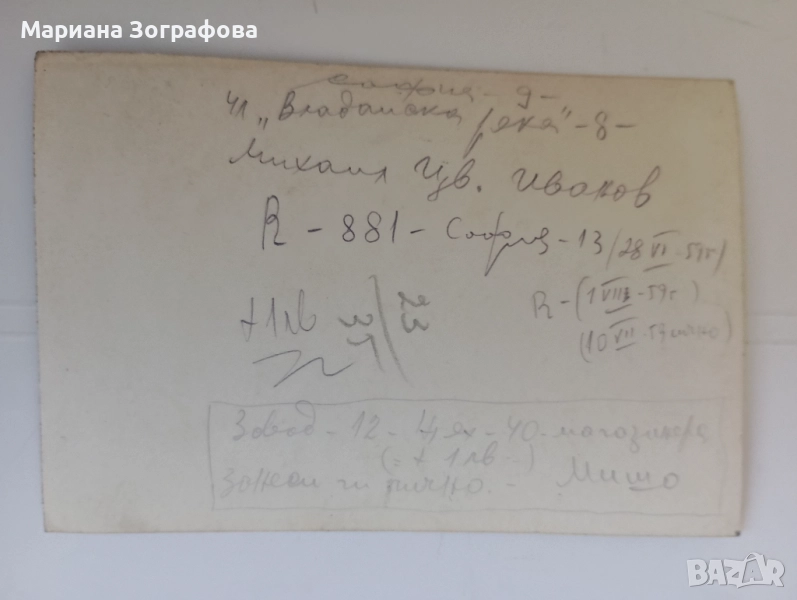 Мариана Зографова
София - 9 -
ул „Владайска река" - 8 -
Михаил Цв. Иванов
R - 881 - София - 13 /28 VI - 59г/
R - (1 VIII - 59г)
(10 VII - 59 лично)
+ 1 лв
23
35
Завод - 12 - Цех - 40 - магазинера
(- + 1 лв -)
лично. - Мишо
BAZAR